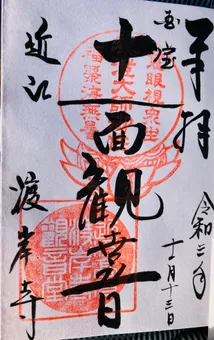 奉拝
令和二年
十一月十三日
国宝
慈眼視衆生
大師
福聚海無量
十一面観世音
観音堂
近江
渡岸寺